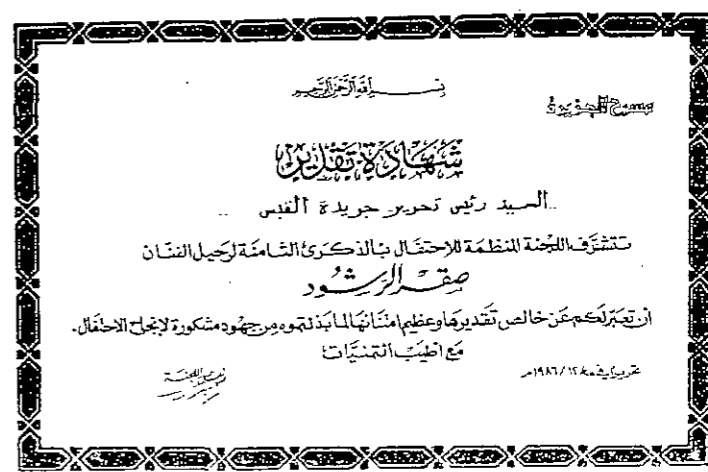 بسم الله الرحمن الرحيم
مسرح
شهادة تقدير
السيد رئيس تحرير جريدة القبس ..
تتشرف اللجنة المنظمة للاحتفال بالذكرى الثامنة لرحيل الفنان
صقر الرشود
ان تعبر لكم عن خالص تقديرها وعظيم امتنانها لما بذلتموه من جهود مشكورة لإنجاح الاحتفال.
مع اطيب التمنيات؛
تحريرا في ١٩٨٦/١٢/ م
اللجنة